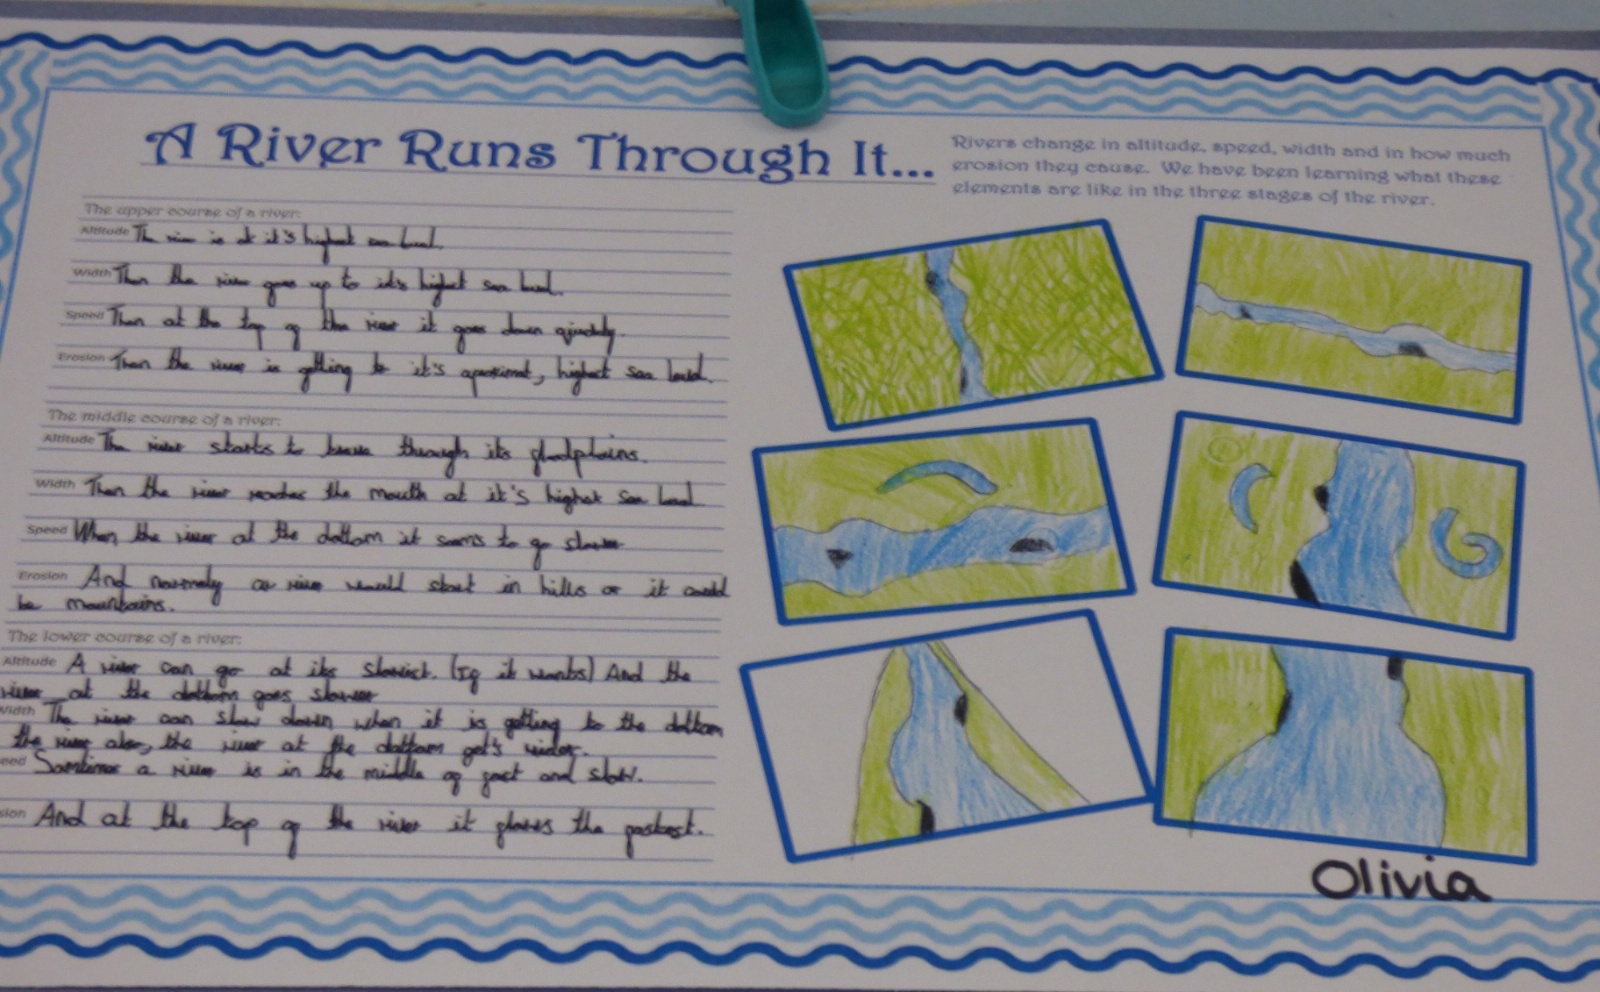 A River Runs Through It...
Rivers change in altitude, speed, width and in how much
erosion they cause. We have been learning what these
elements are like in the three stages of the river.
The upper course of a river:
Altitude The river is at it's highest sea level.
Width Then the river goes up to it's highest sea level.
Speed Then at the top of the river it goes down quickly.
Erosion Then the river is getting to it's highest sea level.
The middle course of a river:
Altitude The river starts to through its floodplains.
Width Then the river reaches the mouth at it's highest sea level
Speed When the river at the bottom it seems to go slower
Erosion And a river would start in hills or it could
be mountains.
The lower course of a river:
Altitude A river can go at its slowest. (If it wants) And the
river at the bottom goes slower
Width The river can slow down when it is getting to the bottom
the river also, the river at the bottom get's wider.
eed Sometimes a river is in the middle of fast and slow.
sion And at the top of the river it flows the fastest.
Olivia